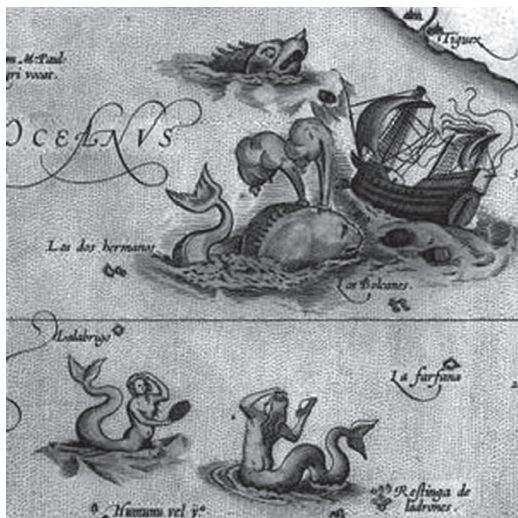 Tiguex
m M. Paul.
gri vocat.
OCEANVS
Los dos hermanos
Los Bolcanes.
Malabrigo
La farfana
Restinga de
ladrones.
Humunu vel ÿ.ᵃ